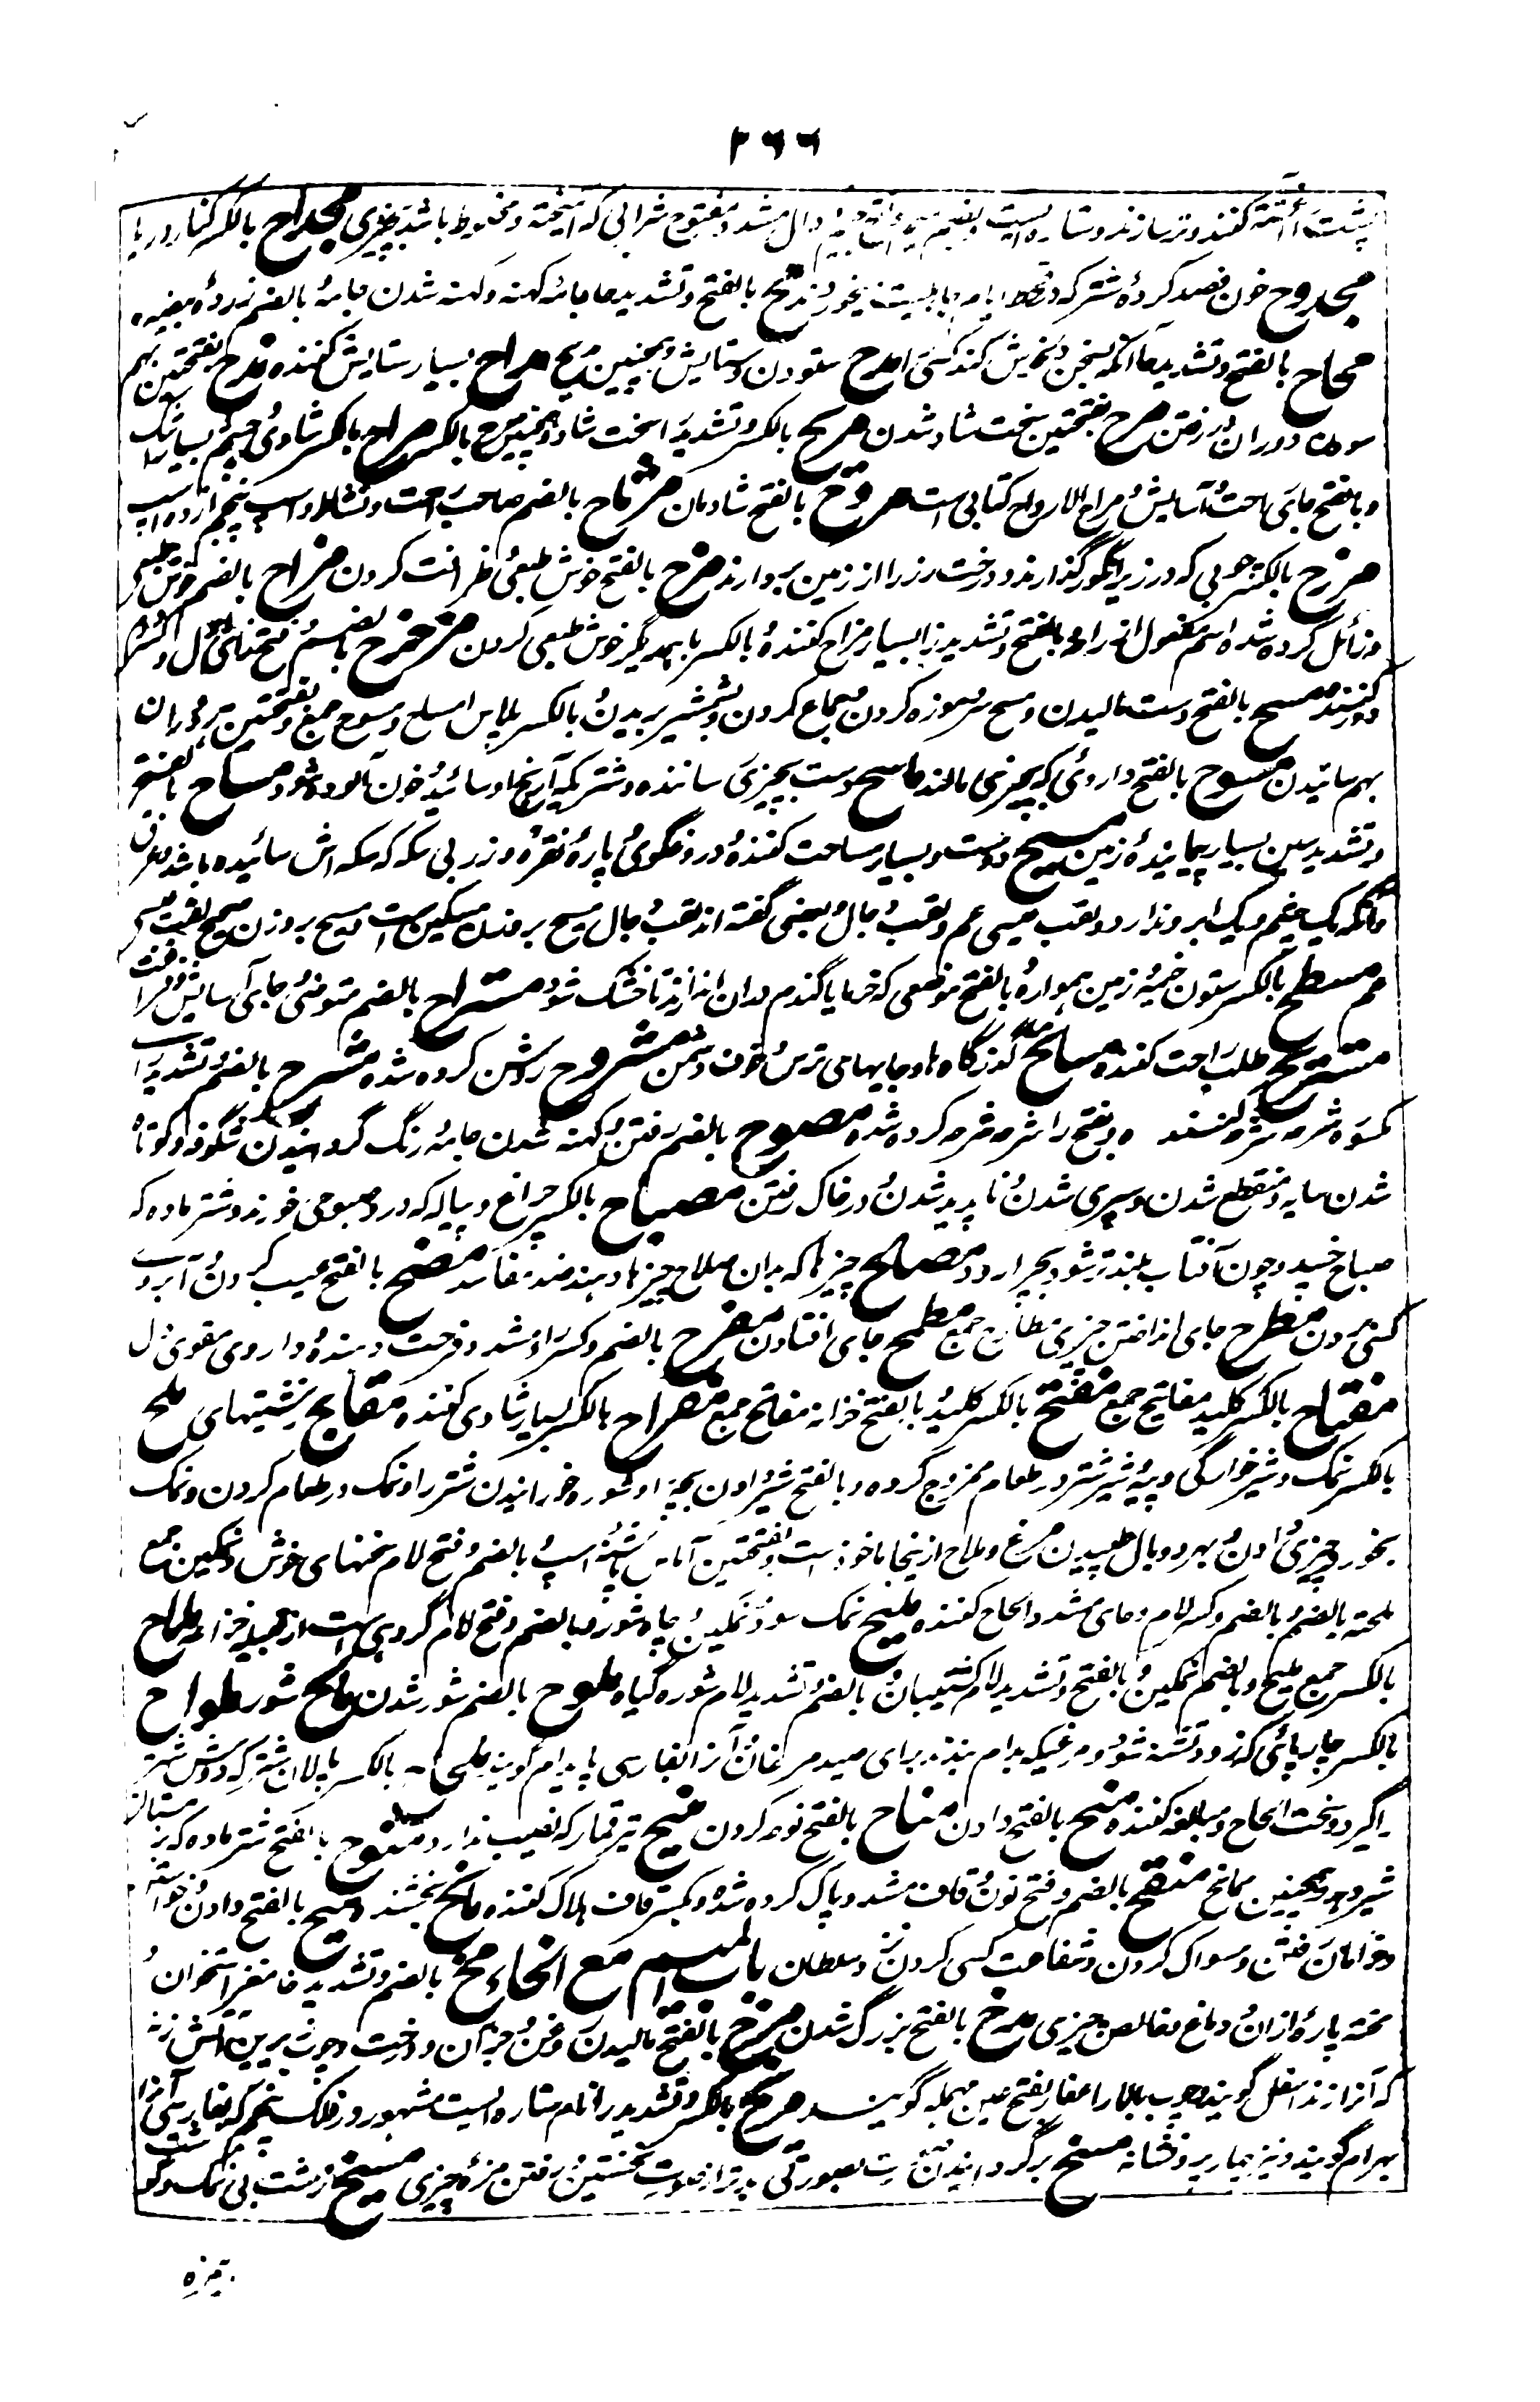 ۲۶۶
کنند و تر سازند و ستاره ایست دال مشدد مفتوح شرابی که آمیخته و مخلوط باشد بچیزی مجداح بالکسر کنار دریا
مجدوح خون فصد کردهٔ شتر که در قحط ایام جاهلیت میخوردند مح بالفتح و تشدید حا جامهٔ کهنه و کهنه شدن جامه و بالضم زردهٔ بیضه
محاح بالفتح و تشدید حا آنکه بسخن خوش کند کسی را مدح ستودن و ستایش و همچنین مدیح مداح بسیار ستایش کننده مذح بفتحتین بهم
سودن دو ران در رفتن مرح بفتحتین سخت شاد شدن مریح بالکسر و تشدید را سخت شاد و همچنین مرح بالکسر مراح بالکسر شادی و چشم بسیار اشک
و بالفتح جای راحت و آسایش و مراح الارواح کتابی است مروح بالفتح شادمان مرتاح بالضم صاحب راحت و نشاط و اسپ پنجم از ده اسپ
مزح بالکسر چوبی که در زیر انگور گذارند و درخت رز را از زمین بردارند مزح بالفتح خوش طبعی و ظرافت کردن مزاح بالضم خوش طبعی
و زائل کرده شده اسم مفعول از ازاحه و بالفتح و تشدید زا بسیار مزاح کننده و بالکسر با یکدیگر خوش طبعی کردن مزحزح بالضم و فتح
دور کنند مسح بالفتح دست مالیدن و مسح سر و موزه کردن و جماع کردن و بشمشیر بریدن و بالکسر پلاس امساح و مسوح جمع و بفتحتین هر دو ران
بهم سائیدن مسوح بالفتح داروئی که بچیزی مالند ماسح دست بچیزی ساننده و شتریکه آرنجها او سائیده خون آلوده شود مساح بالفتح
و تشدید سین بسیار پیمایندهٔ زمین مسیح دوست و بسیار مساحت کننده و دروغگوی و پارهٔ نقره و زر بی سکه که سکه اش سائیده باشد و عرق
و آنکه یک چشم و یک ابرو ندارد و لقب عیسی عم و لقب دجال و بعضی گفته اند لقب دجال مسیح بر وزن سکین است و مسیح بر وزن مسیح لقب عیسی
عم مسطح بالکسر ستون خیمه و زمین هموار و بالفتح موضعی که خرما یا گندم بدان اندازند تا خشک شود مستراح بالضم متوضئ و جای آسایش و فراغت
مستریح طلب راحت کننده مسالح گذرگاه ها و جایهای ترس و خوف دشمن مشروح روشن کرده شده مشرح بالضم و تشدید را
مکسوره شرحه شرحه کننده و بفتح را شرحه شرحه کرده شده مصوح بالضم رفتن و کهنه شدن جامه و رنگ گردانیدن شگوفه و کوتاه
شدن سایه و منقطع شدن و سپری شدن و ناپدید شدن و در خاک رفتن مصباح بالکسر چراغ و پیاله که در صبوحی خورند و شتر ماده که
صباح خسپد و چون آفتاب بلند تر شود بچرا رود مصالح چیزها که بدان صلاح چیزها دهند ضد مفاسد مضح بالفتح عیب کردن و آبروی
کسی بردن مطرح جای انداختن چیزی مطارح جمع مطیح جای افتادن مفرح بالضم و کسر را مشدد فرحت دهنده و داروی مقوی دل
مفتاح بالکسر کلید مفاتیح جمع مفتح بالکسر کلید و بالفتح خزانه مفاتح جمع مفراح بالکسر بسیار شادی کننده مقابح زشتیهای ملح
بالکسر نمک و شیر خوارگی و پیه و شیر شتر در طعام ممزوج کرده و بالفتح شیر دادن بچه را و شوره خورانیدن شتر را و نمک در طعام کردن و نمک
بخورد چیزی دادن و بهر دو بال طپیدن مرغ و ملاح ازینجا ماخوذ است و بفتحتین آماس پاشنهٔ اسپ و بالضم و فتح لام سخنهای خوش و نمکین جمع
ملحة بالضم و بالضم و کسر لام و حای مشدد الحاح کننده ملیح نمک سود و نمکین و چاه شور و بالضم و فتح لام گروهی است از قبیلهٔ خزاعه ملاح
بالکسر جمع ملیح و بالضم نمکین و بالفتح و تشدید لام کشتیبان و بالضم و تشدید لام شوره گیاه ملوح بالضم شور شدن مالح شور ملواح
بالکسر چارپائی که زود تشنه شود و مرغیکه بدام بندند برای صید مرغان و آنرا بفارسی پایدام گویند ملحاح بالکسر پالان شتر که دوش شتر
را گیرد و سخت الحاح و مبالغه کننده منح بالفتح دادن مناح بالفتح نوحه کردن منیح تیر قمار که نصیب ندارد منوح بالفتح شتر ماده که در زمستان
شیر دهد و همچنین ممانح منقح بالضم و فتح نون و قاف مشدد پاک کرده شده و بکسر قاف پاک کننده مانح بخشنده میح بالفتح دادن و خواستن
و خرامان رفتن و مسواک کردن و شفاعت کسی کردن نزد سلطان باب المیم مع الخاء مخ بالضم و تشدید خا مغز استخوان و
مخه پارهٔ ازان و دماغ و خالص چیزی مدخ بالفتح بزرگ شدن مرخ بالفتح مالیدن روغن و جز آن و درخت و چوب زیرین آتش زنه
که آنرا زند اسفل گویند و چوب بالا را عفار بفتح عین مهمله گویند مریخ بالکسر و تشدید را نام ستاره ایست مشهور در فلک پنجم که بفارسی آنرا
بهرام گویند و نیز تیار پر و نشانه مسخ برگردانیدن است بصورتی بد تر از صورت نخستین و رفتن مزهٔ چیزی مسیخ زشت و بی نمک و گوشت
بیمزه